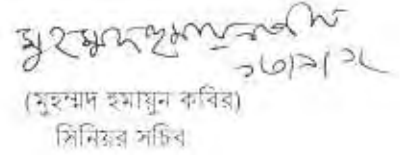 মুহম্মদ হুমায়ুন কবির
(মুহম্মদ হুমায়ুন কবির)
সিনিয়র সচিব